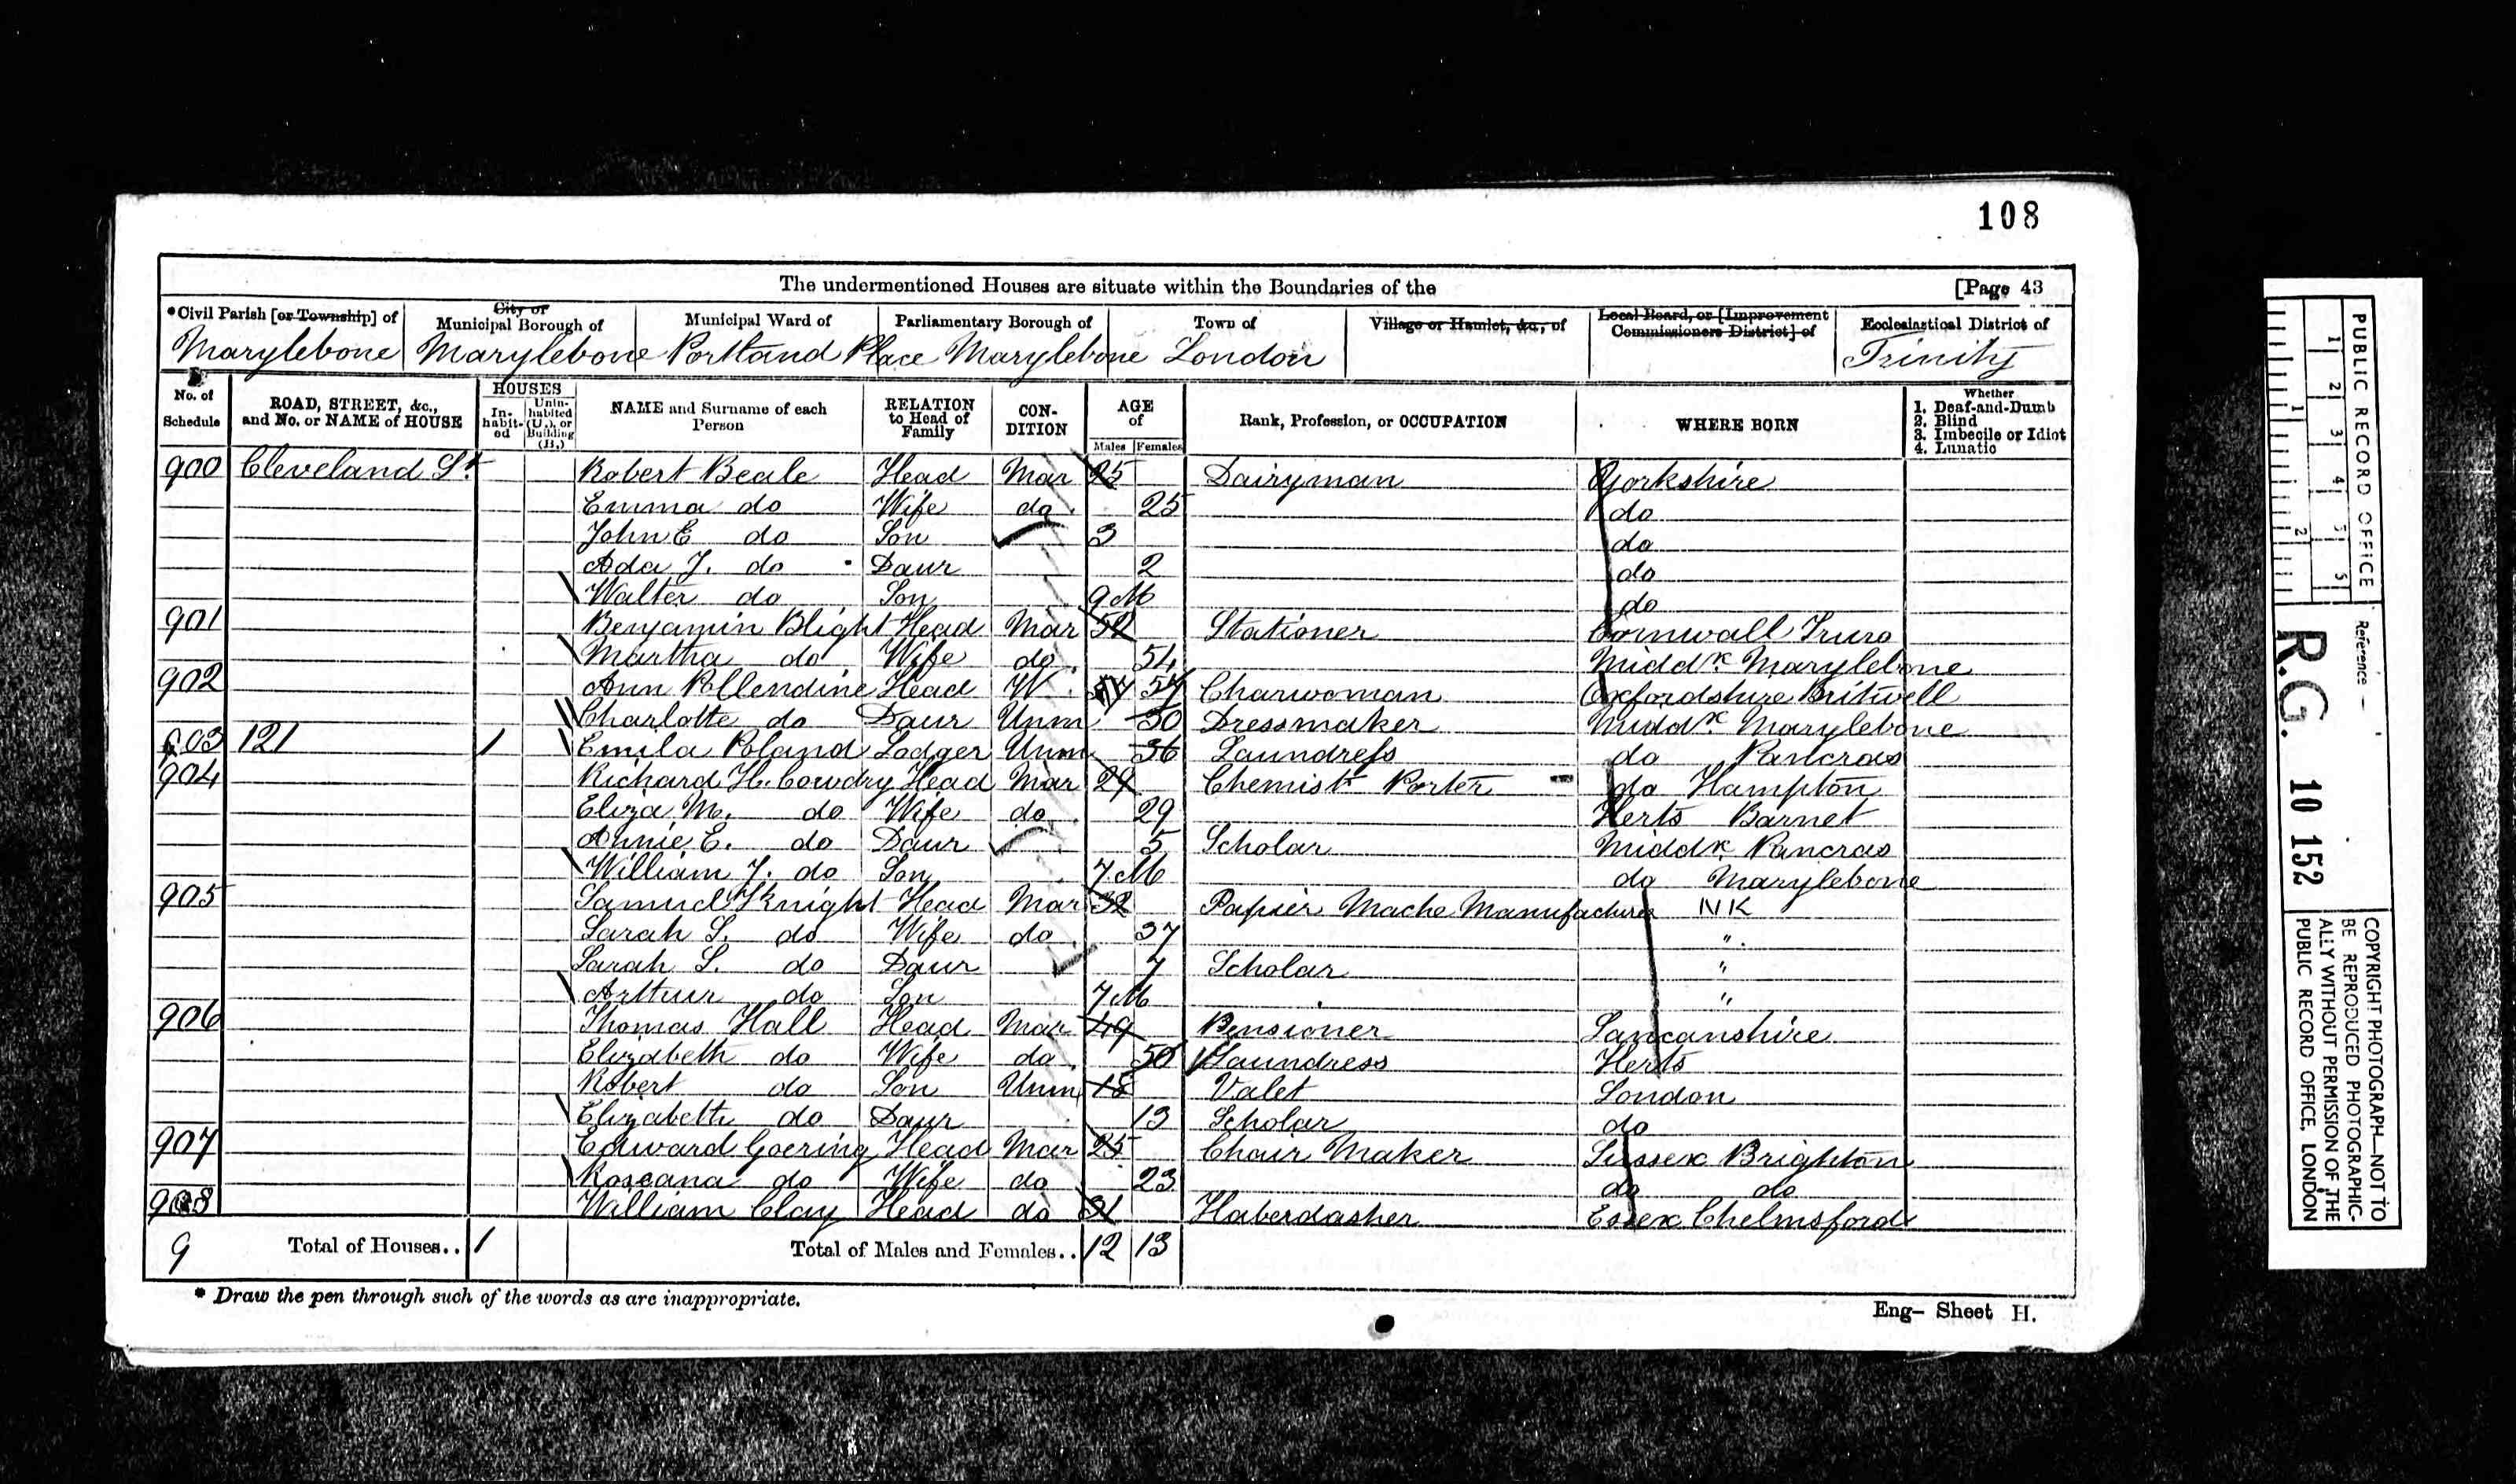 108
The undermentioned Houses are situate within the Boundaries of the [Page 43
*Civil Parish [or Township] of City or Municipal Borough of Municipal Ward of Parliamentary Borough of Town of Village or Hamlet, &c., of Local Board, or [Improvement Commissioners District] of Ecclesiastical District of
Marylebone Marylebone Portland Place Marylebone London Trinity
No. of Schedule ROAD, STREET, &c., and No. or NAME of HOUSE HOUSES In-habit-ed Unin-habited (U.), or Building (B.) NAME and Surname of each Person RELATION to Head of Family CON-DITION AGE of Males Females Rank, Profession, or OCCUPATION WHERE BORN Whether 1. Deaf-and-Dumb 2. Blind 3. Imbecile or Idiot 4. Lunatic
900 Cleveland St. Robert Beale Head Mar 25 Dairyman Yorkshire
Emma do Wife do 25 do
John E do Son 3 do
Ada J. do Daur 2 do
Walter do Son 9 M do
901 Benjamin Blight Head Mar 52 Stationer Cornwall Truro
Martha do Wife do 54 Middx Marylebone
902 Ann Pollendine Head W 57 Charwoman Oxfordshire Britwell
Charlotte do Daur Unm 30 Dressmaker Middx Marylebone
903 121 1 Emila Poland Lodger Unm 36 Laundress do Pancras
904 Richard H. Cowdry Head Mar 29 Chemist Porter do Hampton
Eliza M. do Wife do 29 Herts Barnet
Annie E. do Daur 5 Scholar Middx Pancras
William J. do Son 7 M do Marylebone
905 Samuel Knight Head Mar 32 Papier Mache Manufacturer NK
Sarah S. do Wife do 37 "
Sarah S. do Daur 7 Scholar "
Arthur do Son 7 M "
906 Thomas Hall Head Mar 49 Pensioner Lancanshire
Elizabeth do Wife do 50 Laundress Herts
Robert do Son Unm 18 Valet London
Elizabeth do Daur 13 Scholar do
907 Edward Goering Head Mar 25 Chair Maker Sussex Brighton
Roseana do Wife do 23 do do
908 William Clay Head do 31 Haberdasher Essex Chelmsford
9 Total of Houses.. 1 Total of Males and Females.. 12 13
* Draw the pen through such of the words as are inappropriate.
Eng- Sheet H.
PUBLIC RECORD OFFICE
1 2 3 4 5
1 2
Reference:-
R.G. 10 152
COPYRIGHT PHOTOGRAPH—NOT TO
BE REPRODUCED PHOTOGRAPHIC-
ALLY WITHOUT PERMISSION OF THE
PUBLIC RECORD OFFICE, LONDON